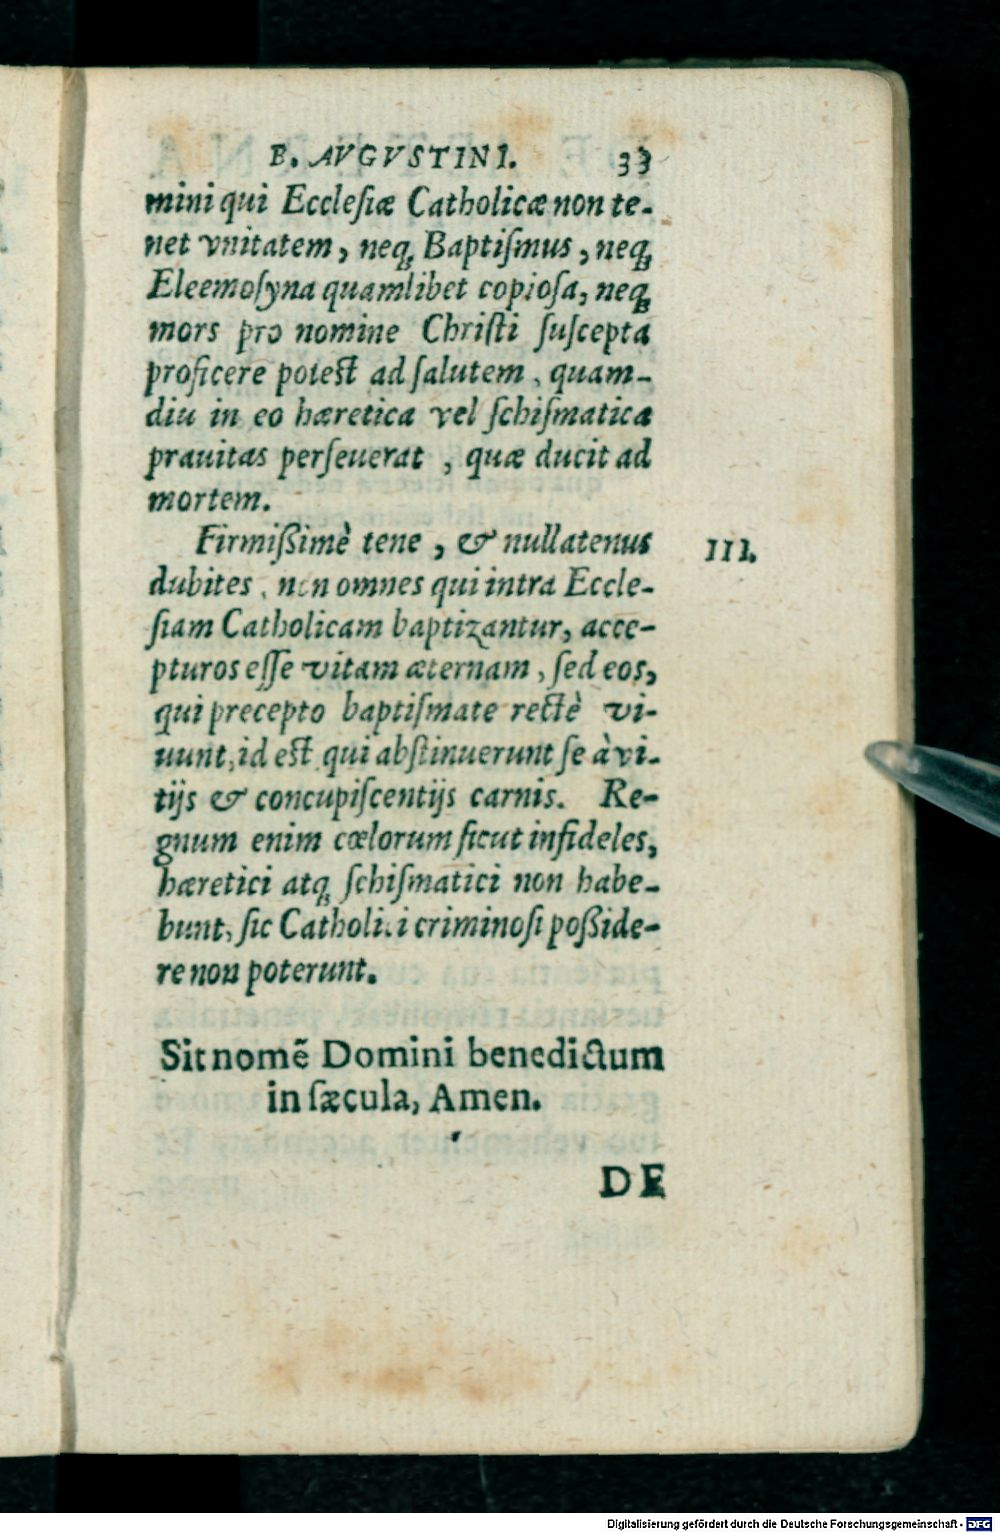 B. AVGVSTINI. 33
mini qui Ecclesiæ Catholicæ non te-
net vnitatem, neq; Baptiſmus, neq;
Eleemoſyna quamlibet copioſa, neq;
mors pro nomine Chriſti ſuſcepta
proficere poteſt ad ſalutem, quam-
diu in eo hæretica vel ſchiſmatica
prauitas perſeuerat, quæ ducit ad
mortem.
Firmißimè tene, & nullatenus
III.
dubites, non omnes qui intra Eccle-
ſiam Catholicam baptizantur, acce-
pturos eſſe vitam æternam, ſed eos,
qui precepto baptiſmate rectè vi-
uunt, id eſt qui abſtinuerunt ſe à vi-
tijs & concupiſcentijs carnis. Re-
gnum enim cœlorum ſicut infideles,
hæretici atq; ſchiſmatici non habe-
bunt, ſic Catholici criminoſi poßide-
re non poterunt.
Sit nomẽ Domini benedictum
in ſæcula, Amen.
DE
Digitalisierung gefördert durch die Deutsche Forschungsgemeinschaft - DFG